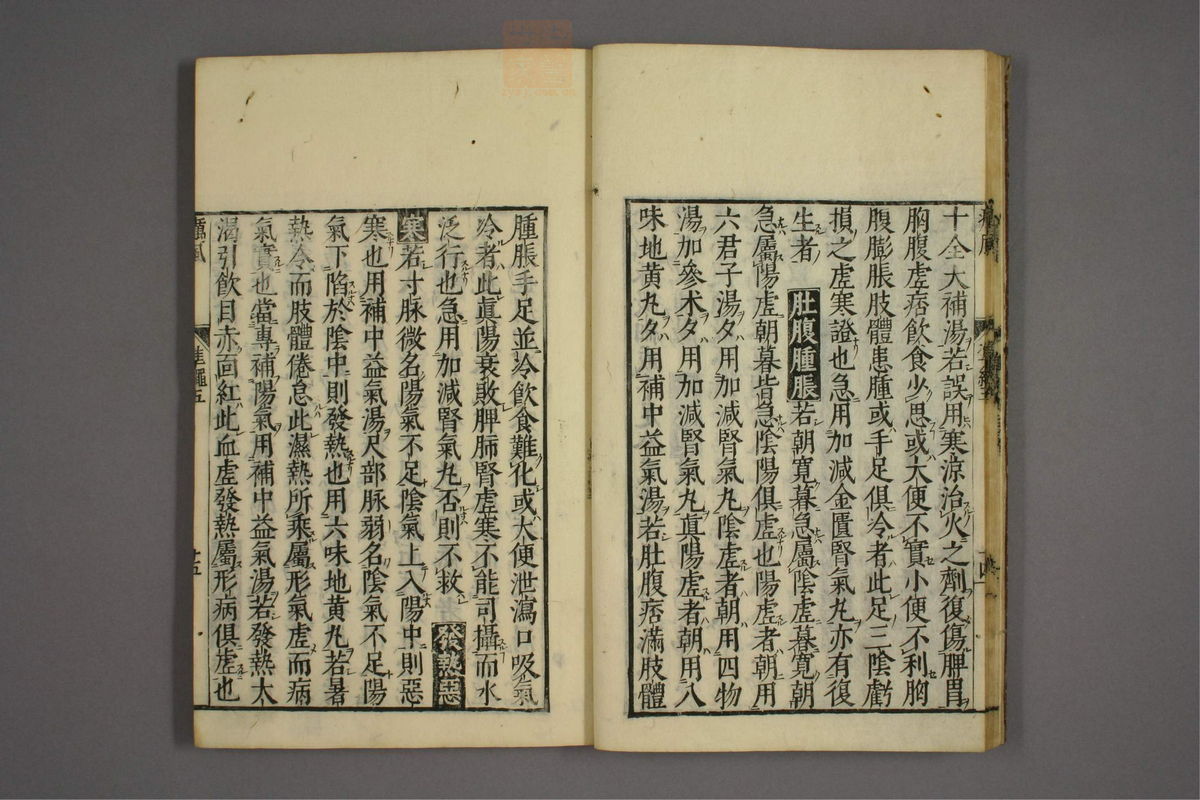 十全大補湯若誤用寒涼治火之劑復傷脾胃
胸腹虛痞飲食少思或大便不實小便不利胸
腹膨脹肢體患腫或手足俱冷者此足三陰虧
損之虛寒證也急用加減金匱腎氣丸亦有復
生者 肚腹腫脹 若朝寛暮急屬陰虛暮寛朝
急屬陽虛朝暮皆急陰陽俱虛也陽虛者朝用
六君子湯夕用加減腎氣丸陰虛者朝用四物
湯加參术夕用加減腎氣丸眞陽虛者朝用八
味地黄丸夕用補中益氣湯若肚腹痞滿肢體
腫脹手足並冷飲食難化或大便泄瀉口吸氣
冷者此眞陽衰敗脾肺腎虛寒不能司攝而水
泛行也急用加減腎氣丸否則不救 發熱惡
寒 若寸脉微名陽氣不足陰氣上入陽中則惡
寒也用補中益氣湯尺部脉弱名陰氣不足陽
氣下陷於陰中則發熱也用六味地黄丸若暑
熱令而肢體倦怠此濕熱所乘屬形氣虛而病
氣實也當專補陽氣用補中益氣湯若發熱大
渴引飲目赤面紅此血虛發熱屬形病俱虛也